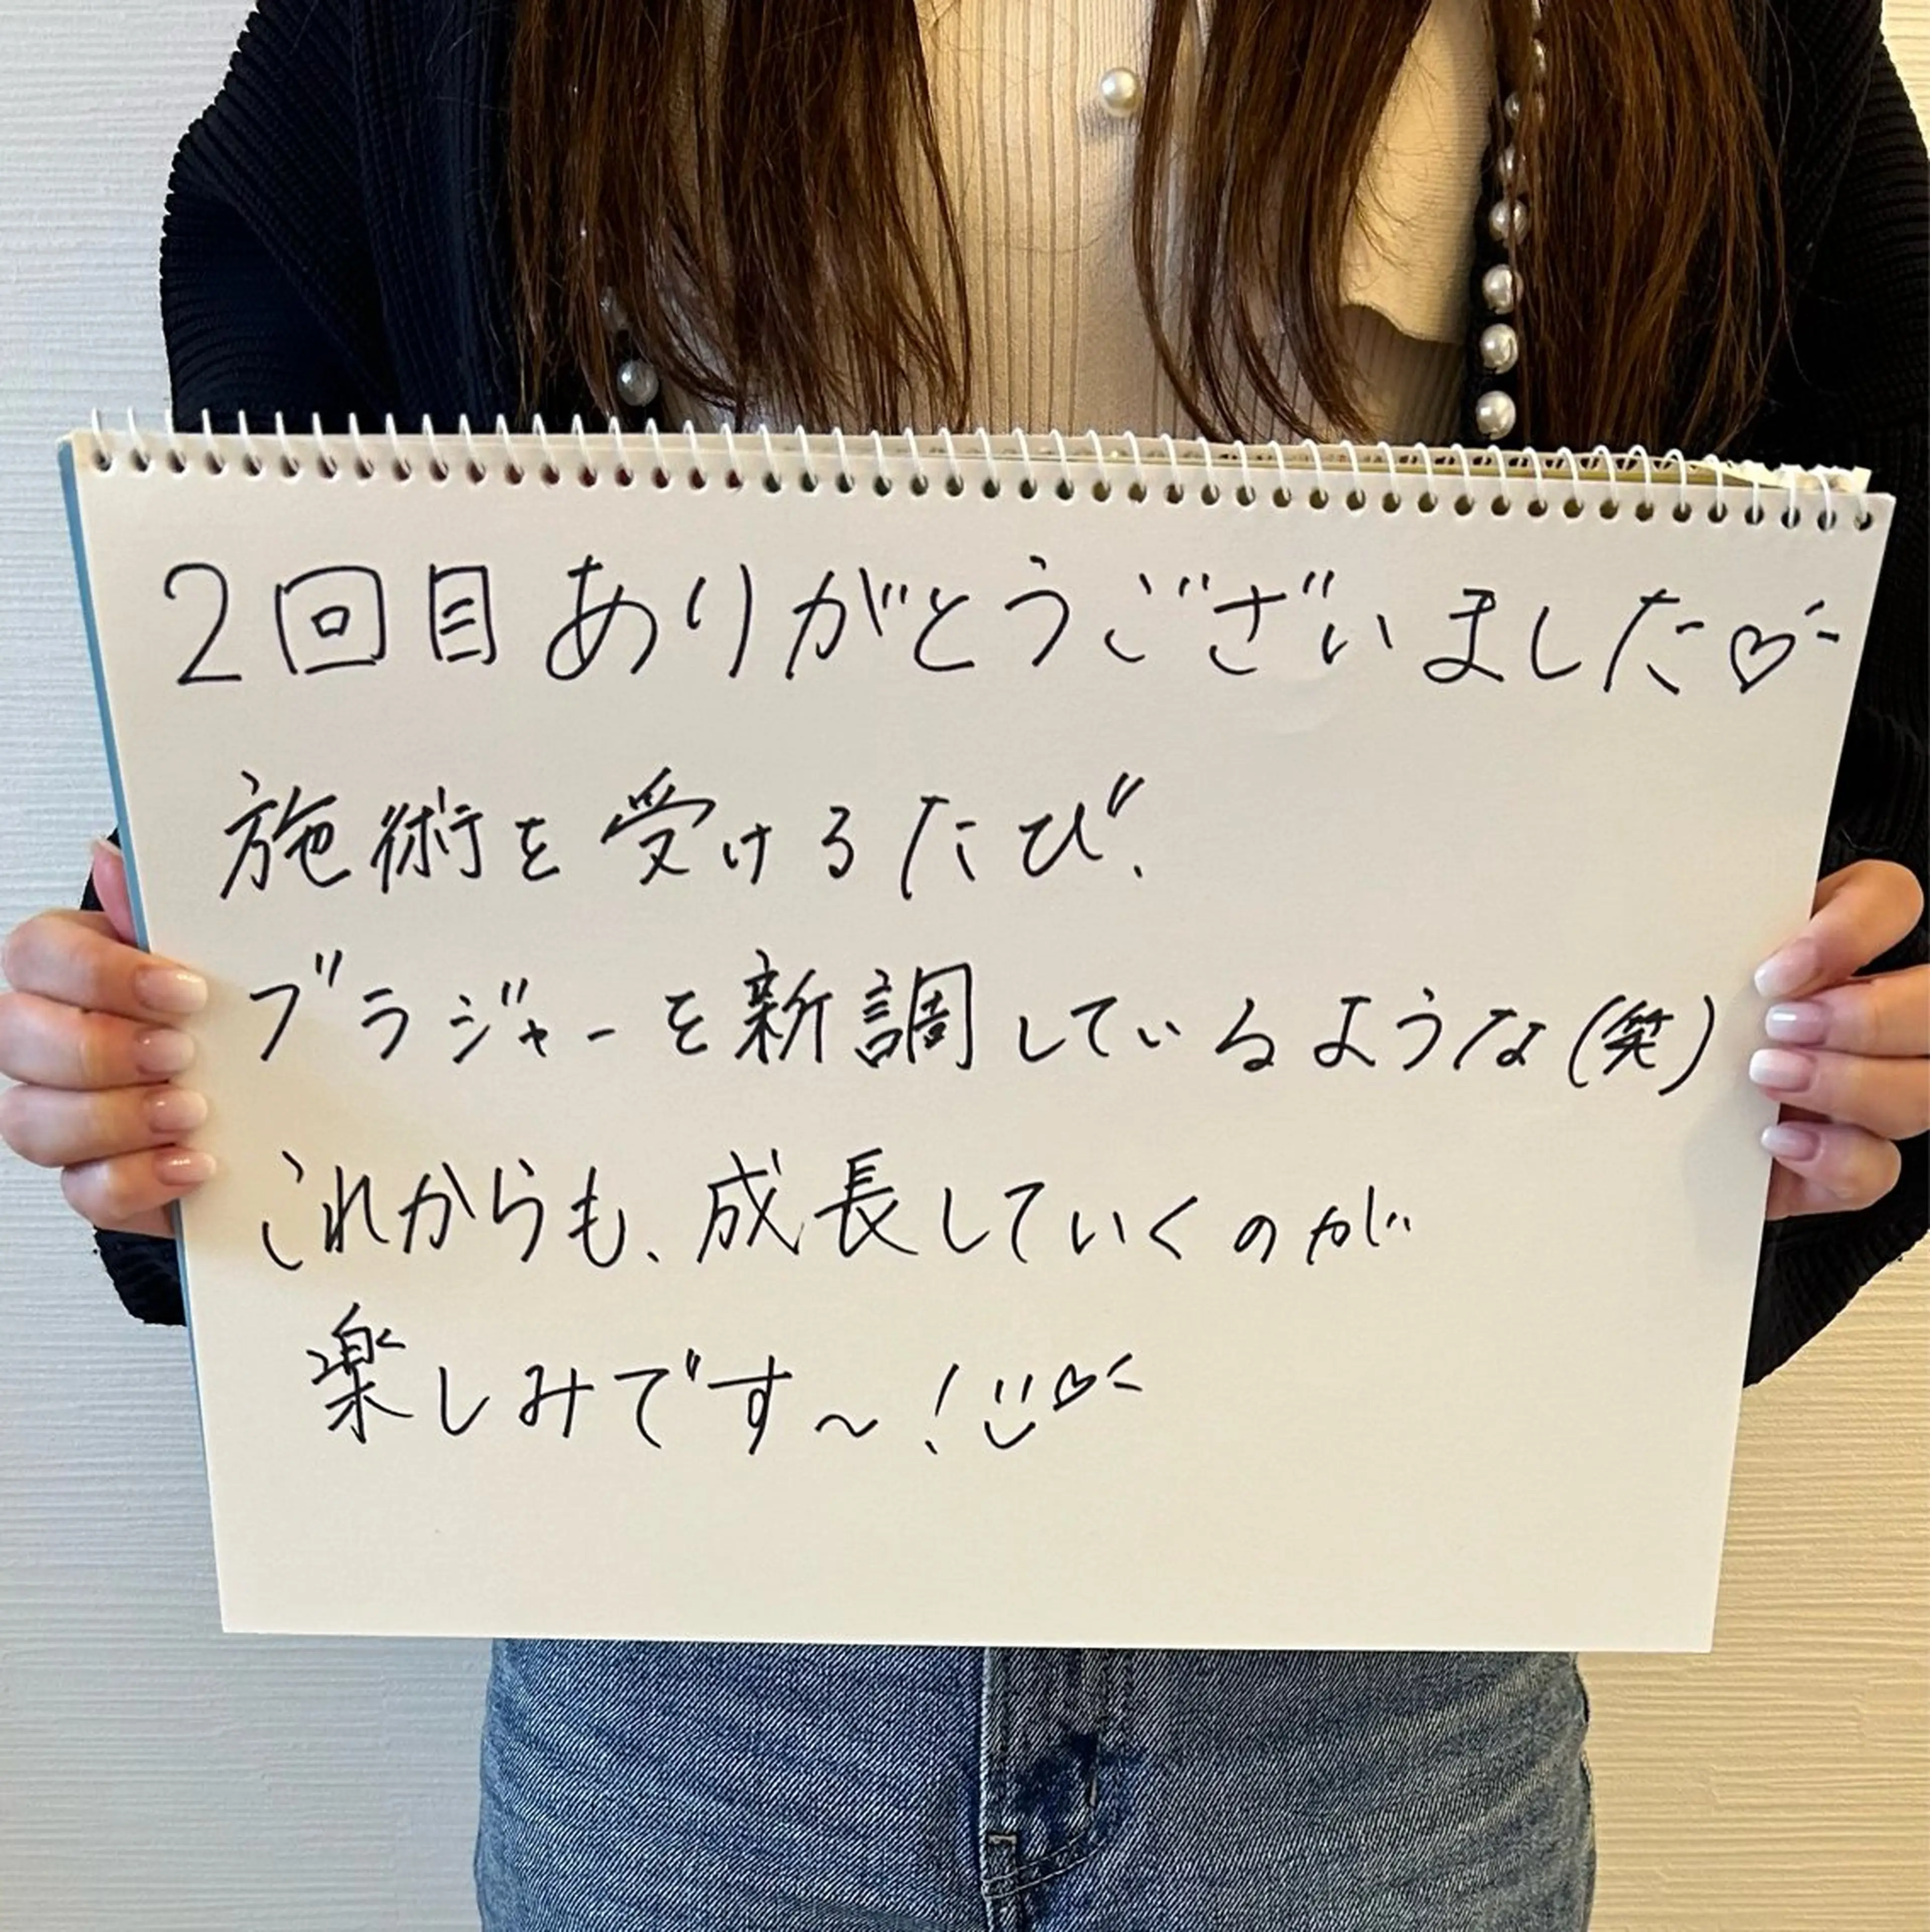 2回目ありがとうございました♡
施術を受けるたび、
ブラジャーを新調しているような(笑)
これからも、成長していくのが
楽しみです～!